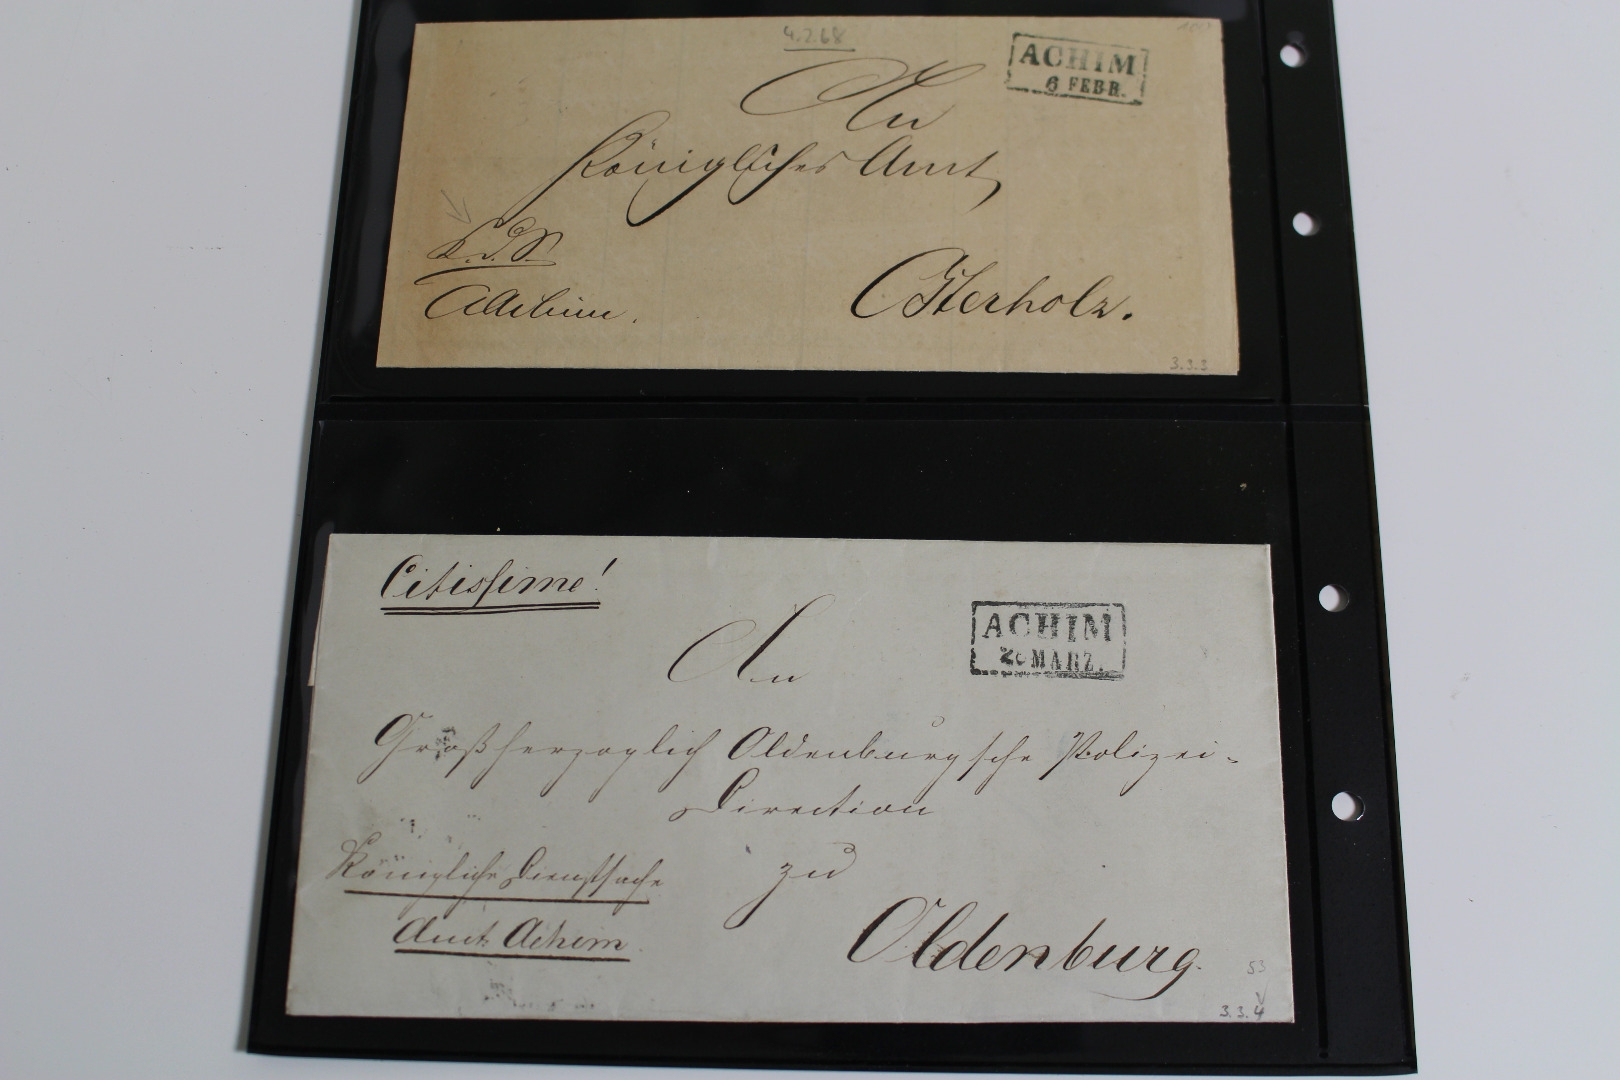 4.2.68
ACHIM
6 FEBR.
An
Königliches Amt
K.d.S.
A. Achim.
Osterholz.
3.3.3
Citissime!
ACHIM
MÄRZ.
An
Großherzoglich Oldenburgsche Polizei-
Direction
zu
Königliche Dienstsache
Amt Achim
Oldenburg.
53
3.3.4